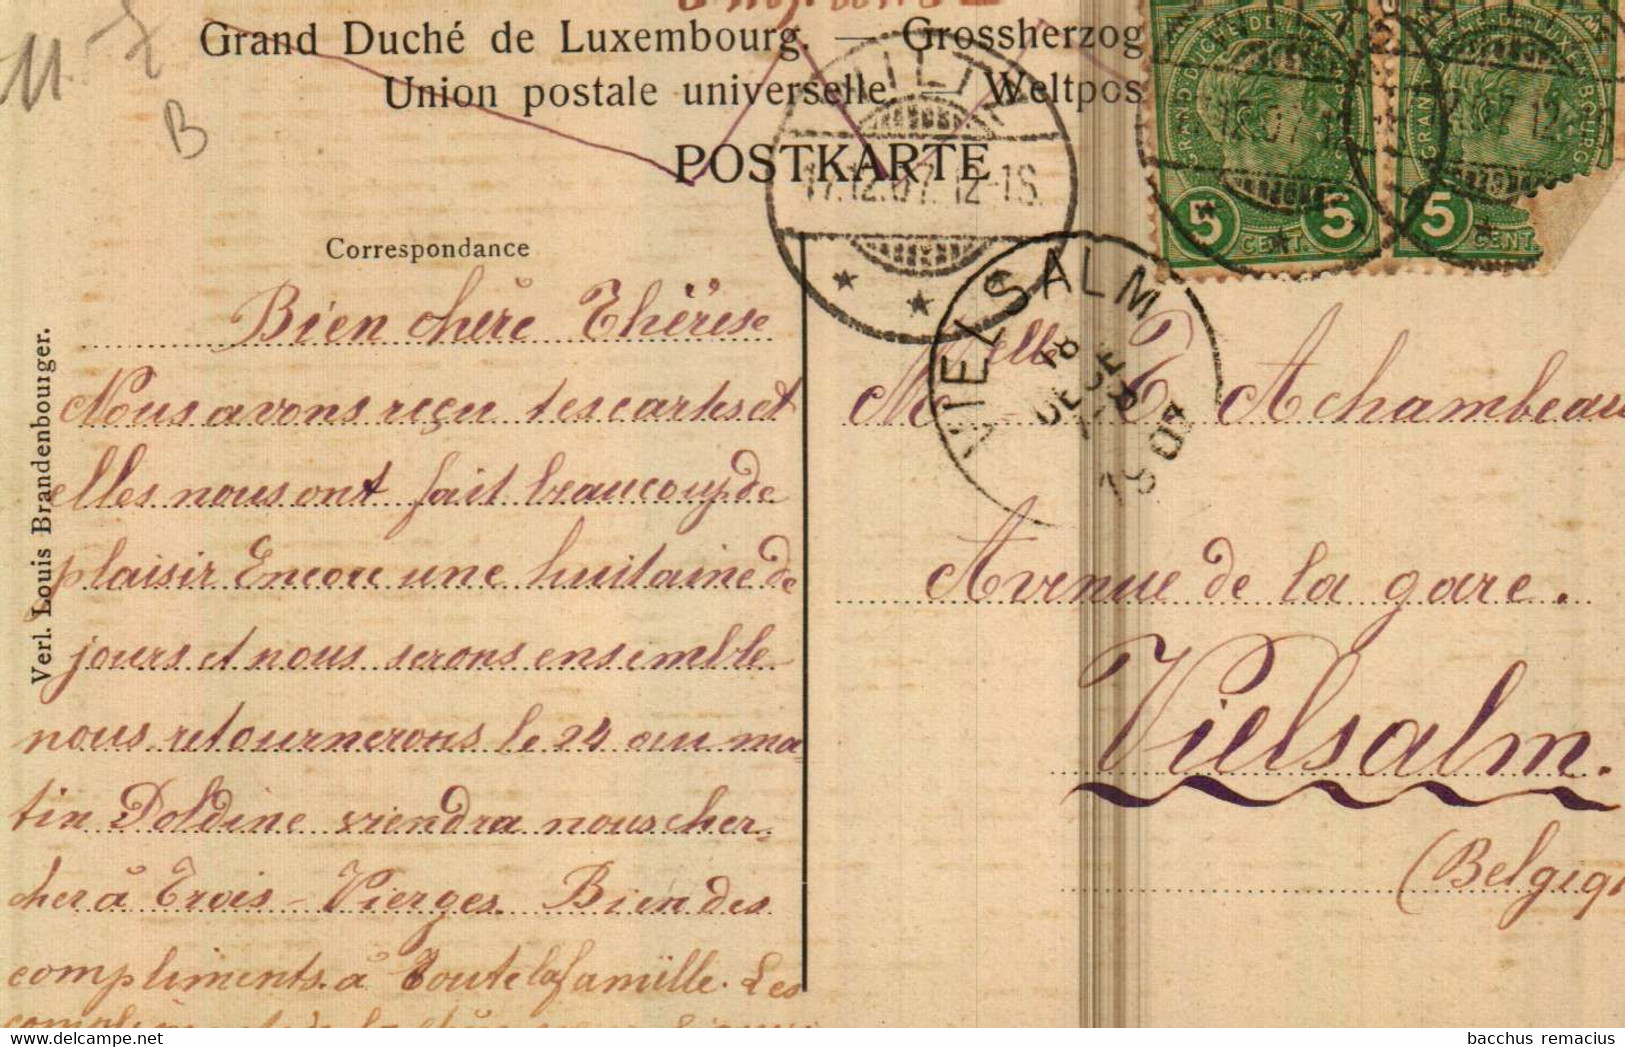 11.
B
Grand Duché de Luxembourg — Grossherzog
Union postale universelle — Weltpos
POSTKARTE
WILTZ
17.12.07. 12-1S.
5 5 CENT.
5 CENT.
VIELSALM
18 DECE 1907
Correspondance
Verl. Louis Brandenbourger.
Bien chère Thérèse
Nous avons reçu tes cartes et
elles nous ont fait beaucoup de
plaisir Encore une huitaine de
jours et nous serons ensemble
nous retournerons le 24 au ma
tin Doldine viendra nous cher-
cher à Trois-Vierges. Bien des
compliments. à Toute la famille. Les
Melle T. Achambeau
Avenue de la gare.
Vielsalm.
(Belgiq
bacchus remacius